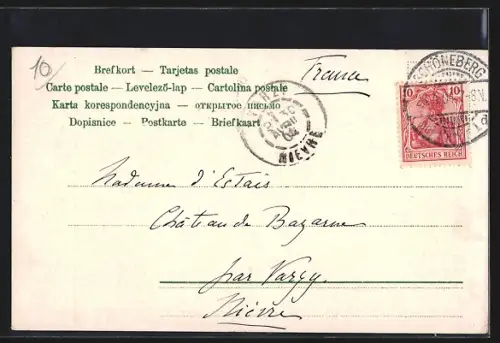 10
Brefkort — Tarjetas postale
Carte postale — Levelező-lap — Cartolina postale
Karta korespondencyjna — открытое письмо
Dopisnice — Postkarte — Briefkaart
France
SCHÖNEBERG
10 10
DEUTSCHES REICH
NIÈVRE
Madame d'Estais
Château de Bazarne
par Varzy
Nièvre